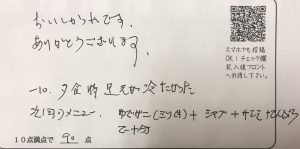 おいしかったです。
ありがとうございます。
-10. 夕食時 足元が冷たかった
次回のメニュー ゆでガニ(ミソ入り) + シャブ + サザエ + てんぷら
で十分
10点満点で 90 点
スマホでも投稿
OK！チェック欄
記入後フロント
へお渡し下さい。